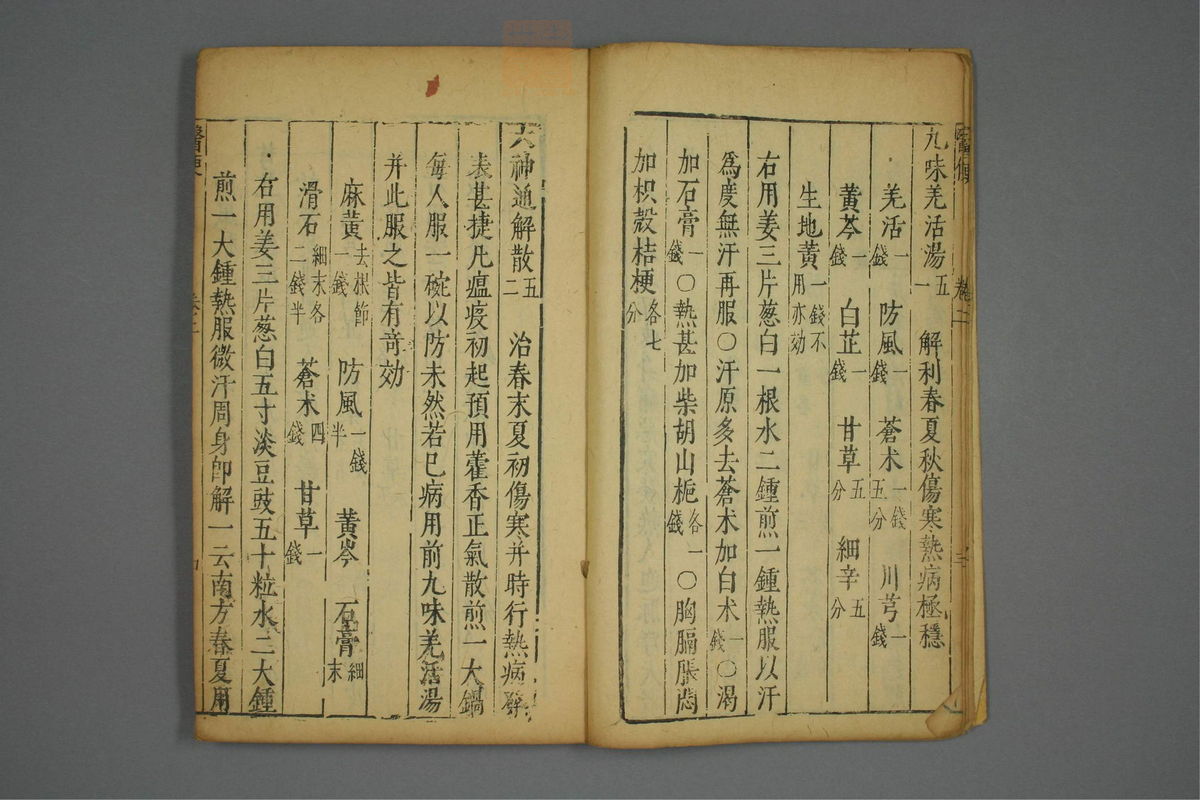 醫便 卷二 三
九味羌活湯五一 解利春夏秋傷寒熱病極穩
羌活一錢 防風一錢 蒼朮一錢五分 川芎一錢
黃芩一錢 白芷一錢 甘草五分 細辛五分
生地黃一錢不用亦効
右用姜三片葱白一根水二鍾煎一鍾熱服以汗
爲度無汗再服○汗原多去蒼朮加白朮一錢○渴
加石膏一錢○熱甚加柴胡山梔各一錢○胸膈脹悶
加枳殼桔梗各七分
六神通解散五二 治春末夏初傷寒并時行熱病發
表甚捷凡瘟疫初起預用藿香正氣散煎一大鍋
每人服一碗以防未然若已病用前九味羌活湯
并此服之皆有奇効
麻黃去根節一錢 防風一錢半 黃岑 石膏細末
滑石細末各二錢半 蒼朮四錢 甘草一錢
右用姜三片葱白五寸淡豆豉五十粒水二大鍾
煎一大鍾熱服微汗周身卽解一云南方春夏用
醫便 卷二